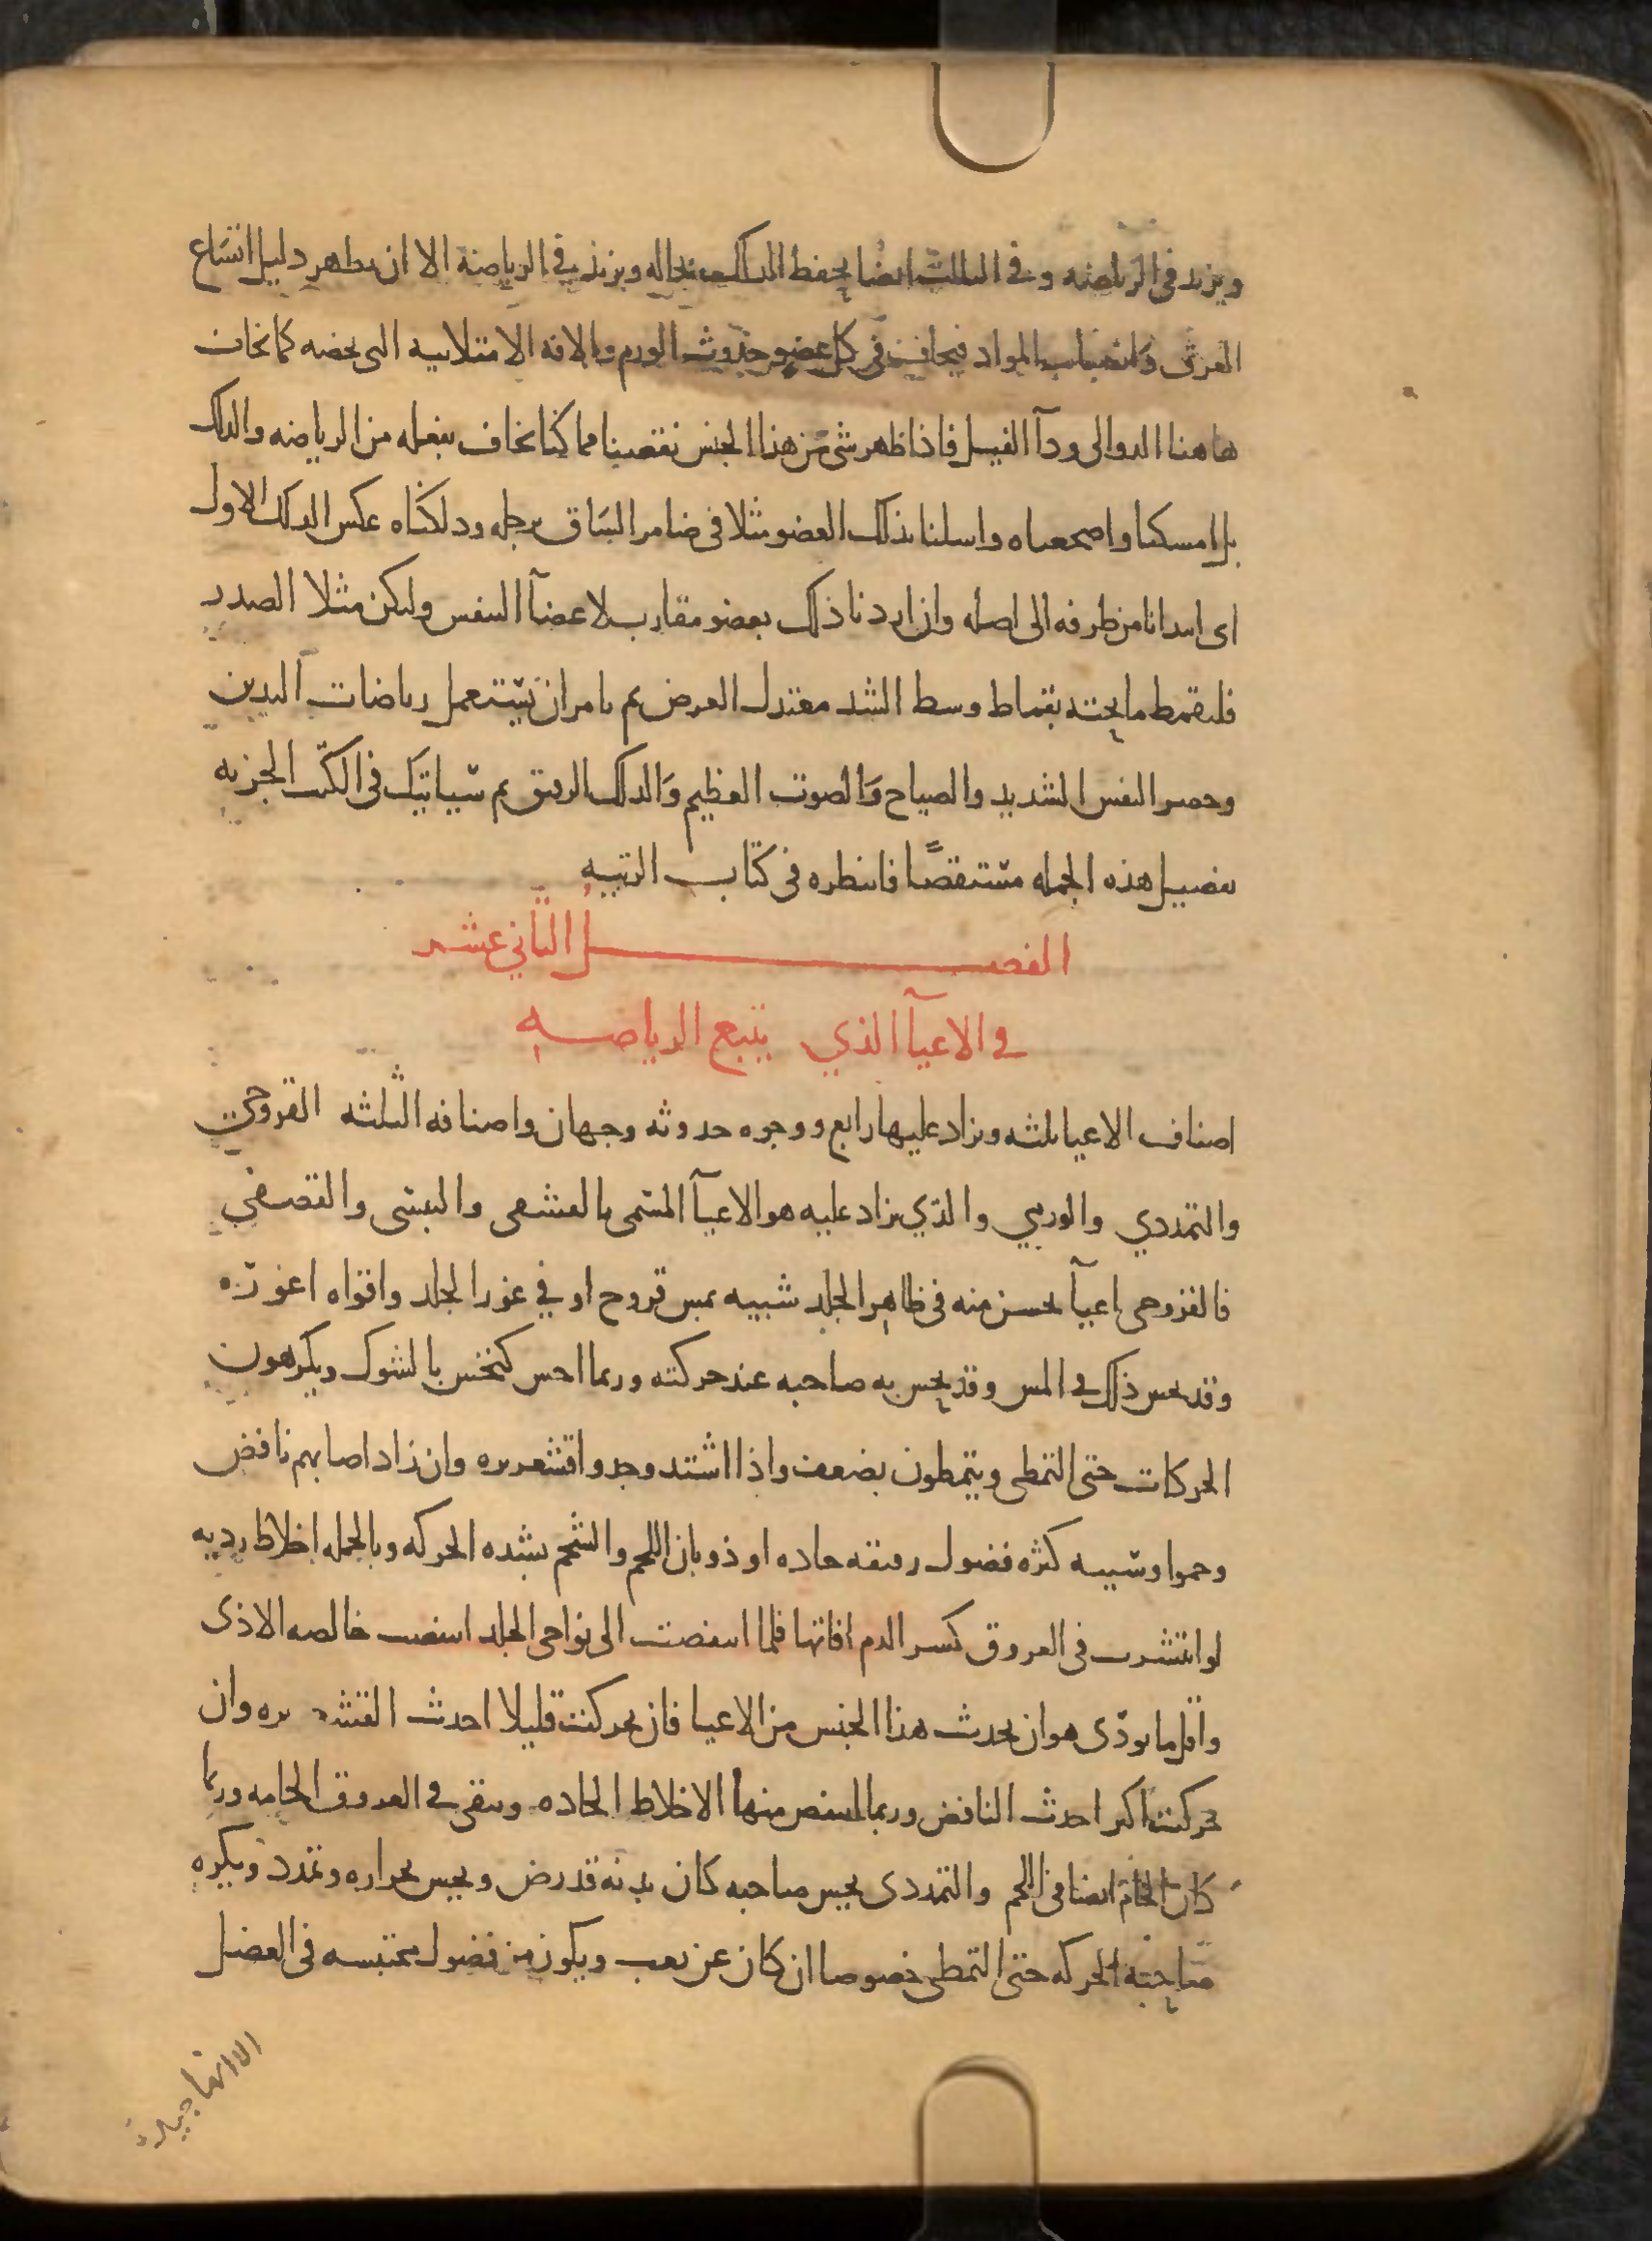 ويزيد في الرياضه وفي الثالث ايضا يحفظ الدلك بحاله ويزيد في الرياضة الا ان يظهر دليل اتساع
العرق وانصباب المواد فيخاف في كل عضو حدوث الورم والافه الامتلاييه التي تخصه كما يخاف
هاهنا الدوالى ودآ الفيل فاذا ظهر شي من هذا الجنس نقصنا مما كنا بفعله من الرياضه والدلك
بل امسكنا واضجعناه واسلنا بذلك العضو مثلا في ضامر الساق برجله ودلكناه عكس الدلك الاول
اى ابتدانا من طرفه الى اصله وان اردنا ذلك بعضو مقارب لاعضآ التنفس وليكن مثلا الصدر
فليقمط ما تحته بقماط وسط الشد معتدل العرض ثم يامر ان يستعمل رياضات اليدين
وحصر النفس الشديد والصياح والصوت العظيم والدلك الرقيق ثم سياتيك في الكتب الجزيه
تفصيل هذه الجمله مستقصًا فانظره في كتاب الزينه
الفصل الثاني عشر
في الاعيآ الذي يتبع الرياضه
اصناف الاعيا ثلثه ويزاد عليها رابع ووجوه حدوثه وجهان واصنافه الثلثه القروحي
والتمددي والورمي والذي يزاد عليه هو الاعيآ المسمى بالقشفى واليبسى والقضفي
فالقروحى اعيآ يحس منه في ظاهر الجلد شبيه بمس قروح او في غور الجلد واقواه اغوره
وقد يحس ذلك في المس وقد يحس به صاحبه عند حركته وربما احس كنخس بالشوك ويكرهون
الحركات حتى التمطى ويتمطون بضعف واذا اشتد وجدوا قشعريره وان زاد اصابهم نافض
وحموا وسببه كثره فضول رقيقه حاده او ذوبان اللحم والشحم بشده الحركه وبالجمله اخلاط رديه
لو انتشرت في العروق كسر الدم افاتها فلما انتفضت الى نواحى الجلد انتفضت خالصه الاذى
واقل ما يوذى هو ان يحدث هذا الجنس من الاعيا فان تحركت قليلا احدث القشعريره وان
تحركت اكثر احدث النافض وربما انتفض منها الاخلاط الحاده وتبقى في العروق الخامه وربما
كان الخام ايضا في اللحم والتمددى يحس صاحبه كان بدنه قد رض ويحس بحراره وتمدد ويكره
صاحبه الحركه حتى التمطى خصوصا ان كان عن تعب ويكون من فضول محتبسه في العضل
الا انها جيدة